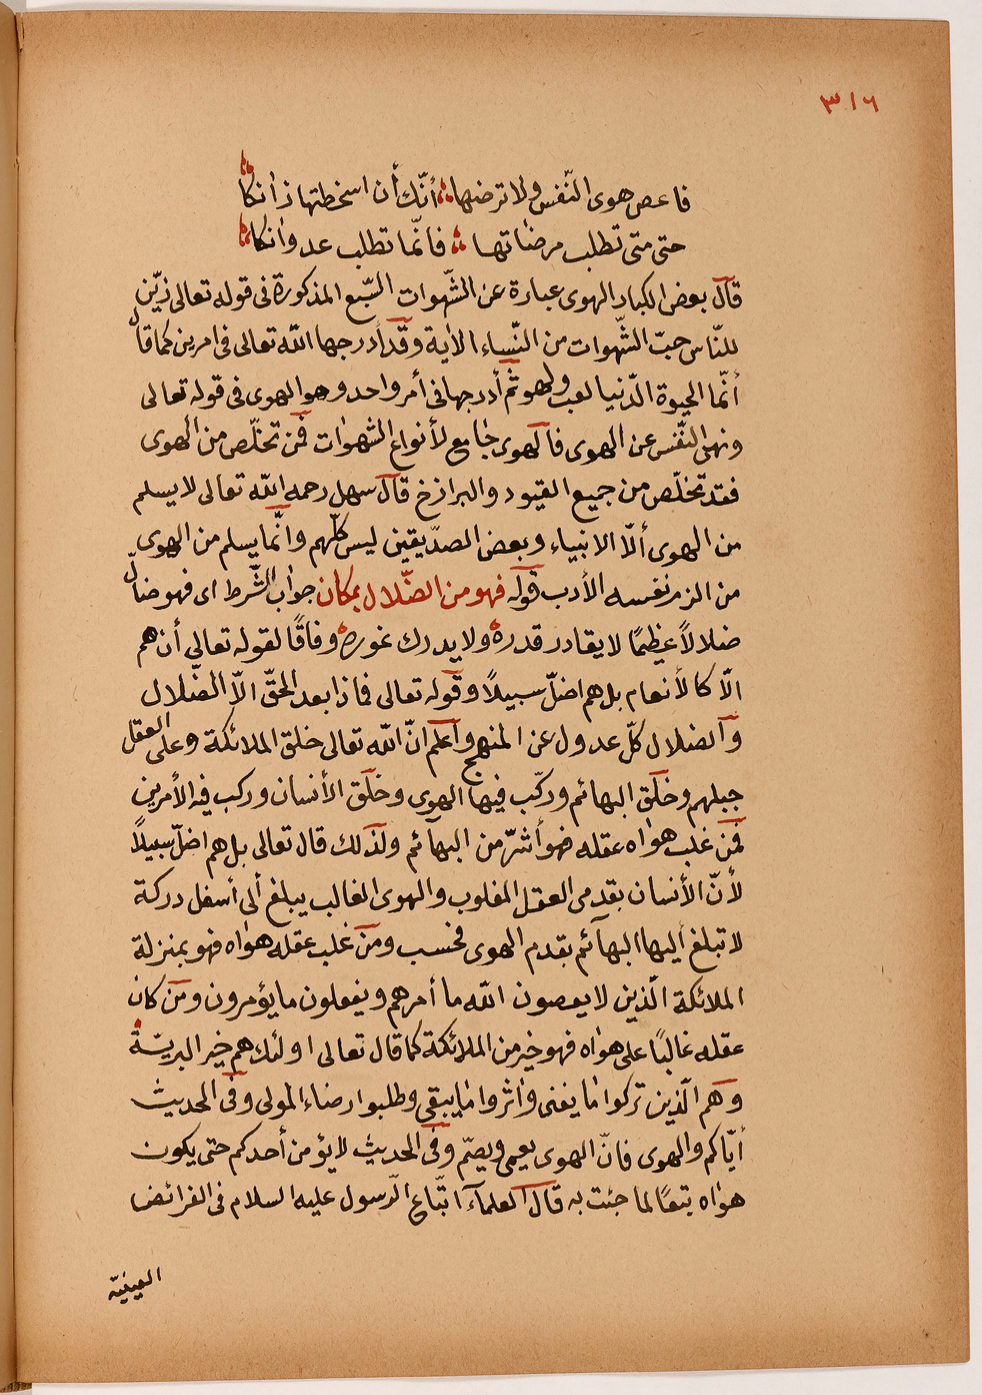 ٣١٦
فاعص هوى النّفس ولا ترضها أنّك أن اسخطتها زانكا
حتى متى تطلب مرضاتها فانّما تطلب عدوانكا
قال بعض الكبار الهوى عبارة عن الشّهوات السّبع المذكورة فى قوله تعالى زيّن
للنّاس حبّ الشّهوات من النّساء الاية وقد أدرجها الله تعالى فى امرين كما قال
أنّما الحيوة الدّنيا لعب ولهو ثم أدرجها فى أمر واحد وهو الهوى فى قوله تعالى
ونهى النّفس عن الهوى فالهوى جامع لأنواع الشهوات فمن تخلّص من الهوى
فقد تخلّص من جميع القيود والبرازخ قال سهل رحمه الله تعالى لا يسلم
من الهوى ألّا الانبياء وبعض الصدّيقين ليس كلّهم وانّما يسلم من الهوى
من الزم نفسه الأدب قوله فهو من الضّلال بمكان جواب الشّرط اى فهو ضالّ
ضلالاً عظيمًا لا يقادر قدره ولا يدرك غوره وفاقًا لقوله تعالى أن هم
الّا كالأنعام بل هم اضلّ سبيلاً وقوله تعالى فماذا بعد الحقّ الاّ الضّلال
والضلال كلّ عدول عن المنهج واعلم انّ الله تعالى خلق الملائكة وعلى العقل
جبلهم وخلق البهائم وركّب فيها الهوى وخلق الأنسان وركب فيه الأمرين
فمن غلب هواه عقله فهو أشرّ من البهآئم ولذلك قال تعالى بل هم اضلّ سبيلاً
لأنّ الأنسان بقدمى العقل المغلوب والهوى الغالب يبلغ ألى أسفل دركة
لا تبلغ أليها البهآئم بقدم الهوى فحسب ومن غلب عقله هواه فهو بمنزلة
الملائكة الّذين لا يعصون الله ما أمرهم ويفعلون ما يؤمرون ومن كان
عقله غالبًا على هواه فهو خير من الملائكة كما قال تعالى اولئك هم خير البريّة
وهم الّذين تركوا ما يفنى واثروا ما يبقى وطلبوا رضاء المولى وفى الحديث
أيّاكم والهوى فانّ الهوى يعمى ويصمّ وفى الحديث لا يؤمن أحدكم حتى يكون
هواه تبعًا لما جئت به قال العلمآء اتّباع الّرسول عليه السلام فى الفرائض
العينيّة